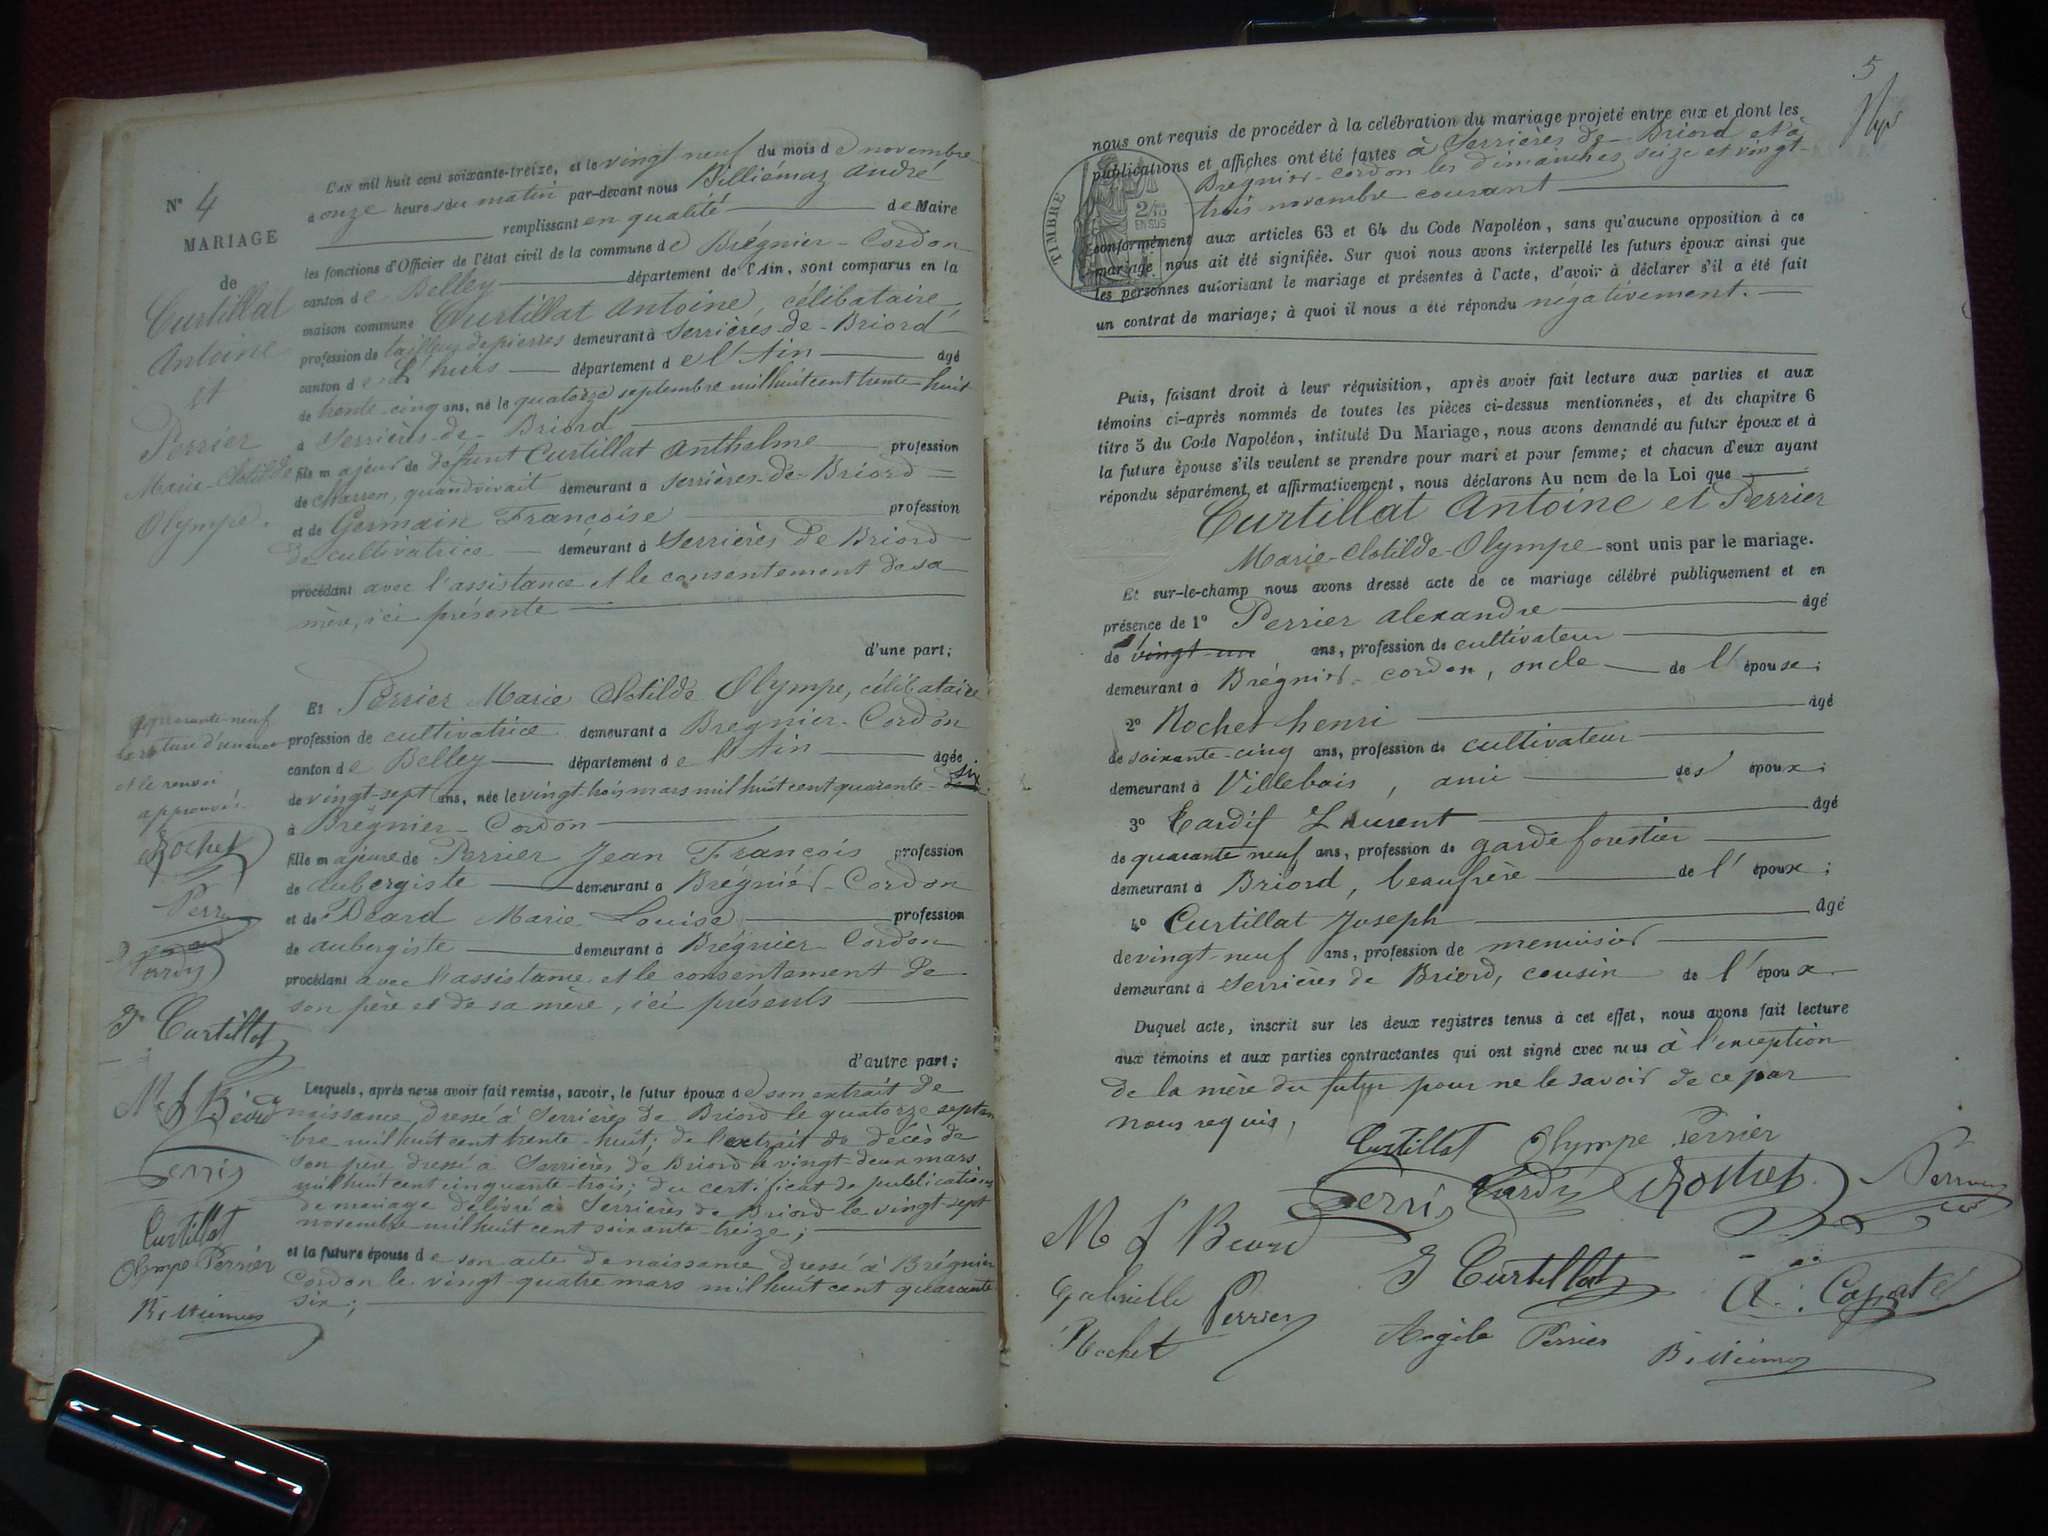 N° 4
MARIAGE
de
Curtillat
Antoine
et
Perrier
Marie-Clotilde
Olympe.
L'AN mil huit cent soixante-treize, et le vingt neuf du mois de novembre
à onze heures du matin par-devant nous Billiémaz André
remplissant en qualité de Maire
les fonctions d'Officier de l'état civil de la commune de Brégnier-Cordon
canton de Belley département de l'Ain, sont comparus en la
maison commune Curtillat Antoine, célibataire
profession de tailleur de pierres demeurant à Serrières-de-Briord
canton de L'huis département de l'Ain agé
de trente-cinq ans, né le quatorze septembre mil huit cent trente-huit
à Serrières-de-Briord
fils majeur de défunt Curtillat Anthelme profession
de charron, quand vivait demeurant à Serrières-de-Briord
et de Germain Françoise profession
de cultivatrice demeurant à Serrières de Briord
procédant avec l'assistance et le consentement de sa
mère, ici présente
d'une part;
Et Perrier Marie Clotilde Olympe, célibataire
profession de cultivatrice demeurant à Brégnier-Cordon
canton de Belley département de l'Ain agée
six
de vingt-sept ans, née le vingt-trois mars mil huit cent quarante-
à Brégnier-Cordon
fille majeure de Perrier Jean François profession
de aubergiste demeurant à Brégnier-Cordon
et de Béard Marie Louise profession
de aubergiste demeurant à Brégnier-Cordon
procédant avec l'assistance et le consentement de
son père et de sa mère, ici présents
d'autre part;
Lesquels, après nous avoir fait remise, savoir, le futur époux de son extrait de
naissance, dressé à Serrières de Briord le quatorze septem
bre mil huit cent trente-huit; de l'extrait de décès de
son père dressé à Serrières de Briord le vingt-deux mars
mil huit cent cinquante-trois; du certificat de publications
de mariage délivré à Serrières de Briord le vingt-sept
novembre mil huit cent soixante-treize;
et la future épouse de son acte de naissance dressé à Brégnier
Cordon le vingt-quatre mars mil huit cent quarante
six;
quarante-neuf
la rature d'un mot
et le renvoi
approuvés.
Rochet
Perrier
Tardif
J Curtillat
M L Béard
Perrier
Curtillat
Olympe Perrier
Billiémaz
5
nous ont requis de procéder à la célébration du mariage projeté entre eux et dont les
publications et affiches ont été faites à Serrières de-Briord et à
Brégnier-Cordon les dimanches seize et vingt-
trois novembre courant
TIMBRE
2/10
EN SUS
conformément aux articles 63 et 64 du Code Napoléon, sans qu'aucune opposition à ce
mariage nous ait été signifiée. Sur quoi nous avons interpellé les futurs époux ainsi que
les personnes autorisant le mariage et présentes à l'acte, d'avoir à déclarer s'il a été fait
un contrat de mariage; à quoi il nous a été répondu négativement.
Puis, faisant droit à leur réquisition, après avoir fait lecture aux parties et aux
témoins ci-après nommés de toutes les pièces ci-dessus mentionnées, et du chapitre 6
titre 5 du Code Napoléon, intitulé Du Mariage, nous avons demandé au futur époux et à
la future épouse s'ils veulent se prendre pour mari et pour femme; et chacun d'eux ayant
répondu séparément et affirmativement, nous déclarons Au nom de la Loi que
Curtillat Antoine et Perrier
Marie-Clotilde-Olympe sont unis par le mariage.
Et sur-le-champ nous avons dressé acte de ce mariage célébré publiquement et en
présence de 1° Perrier Alexandre agé
de vingt-un ans, profession de cultivateur
demeurant à Brégnier-Cordon, oncle de l'épouse;
2° Rochet henri agé
de soixante-cinq ans, profession de cultivateur
demeurant à Villebois, ami des époux;
3° Tardif Laurent agé
de quarante neuf ans, profession de garde forestier
demeurant à Briord, beaufrère de l'époux;
4° Curtillat Joseph agé
de vingt-neuf ans, profession de menuisier
demeurant à Serrières de Briord, cousin de l'époux
Duquel acte, inscrit sur les deux registres tenus à cet effet, nous avons fait lecture
aux témoins et aux parties contractantes qui ont signé avec nous à l'exception
de la mère du futur pour ne le savoir de ce par
nous requis,
Curtillat Olympe Perrier
Perrier Tardif Rochet Perrier
M L Beard
J Curtillat
Gabrielle Perrier
Rochet
Angèle Perrier
Billiémaz